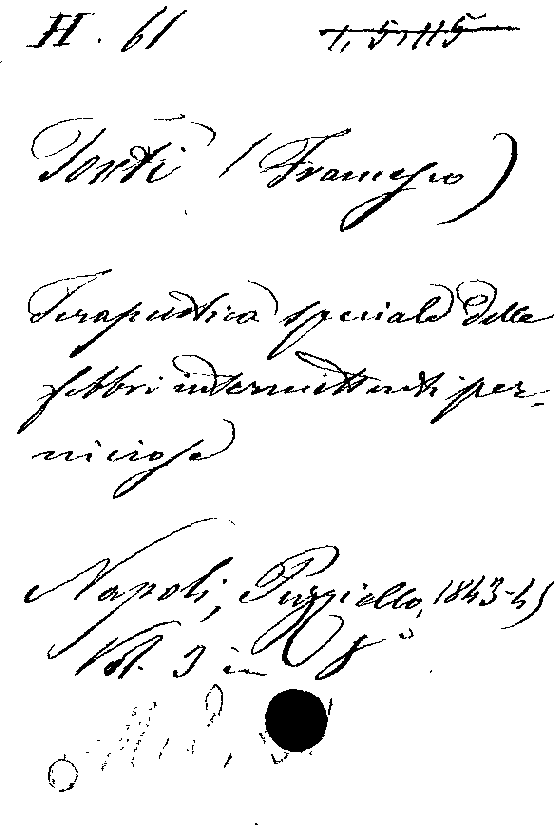 H. 61 1, 5, 115
Torti (Francesco)
Terapeutica speciale delle
febbri intermittenti per-
niciose
Napoli, Puzziello, 1843-45
Vol. 3 in 8°
Med.